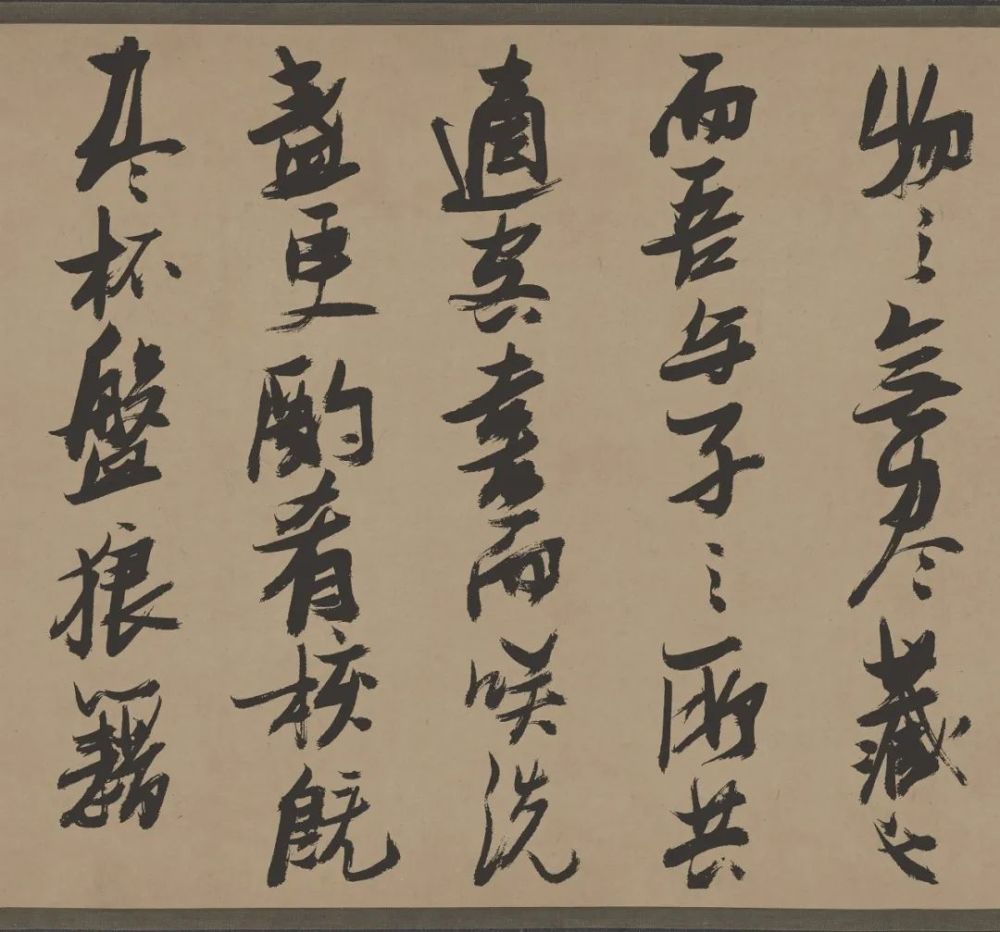 物之無尽藏也
而吾与子之所共
適客喜而咲洗
盞更酌肴核既
尽杯盤狼籍